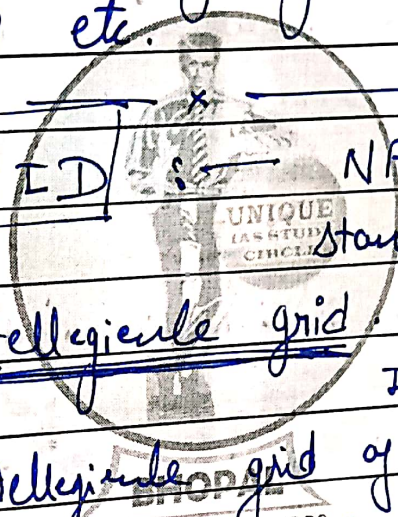 etc.
x
ID : NA
UNIQUE
IAS STUD
CIRCLE
stan
ellegienle grid.
I
ellegienle grid of
BHOPAL